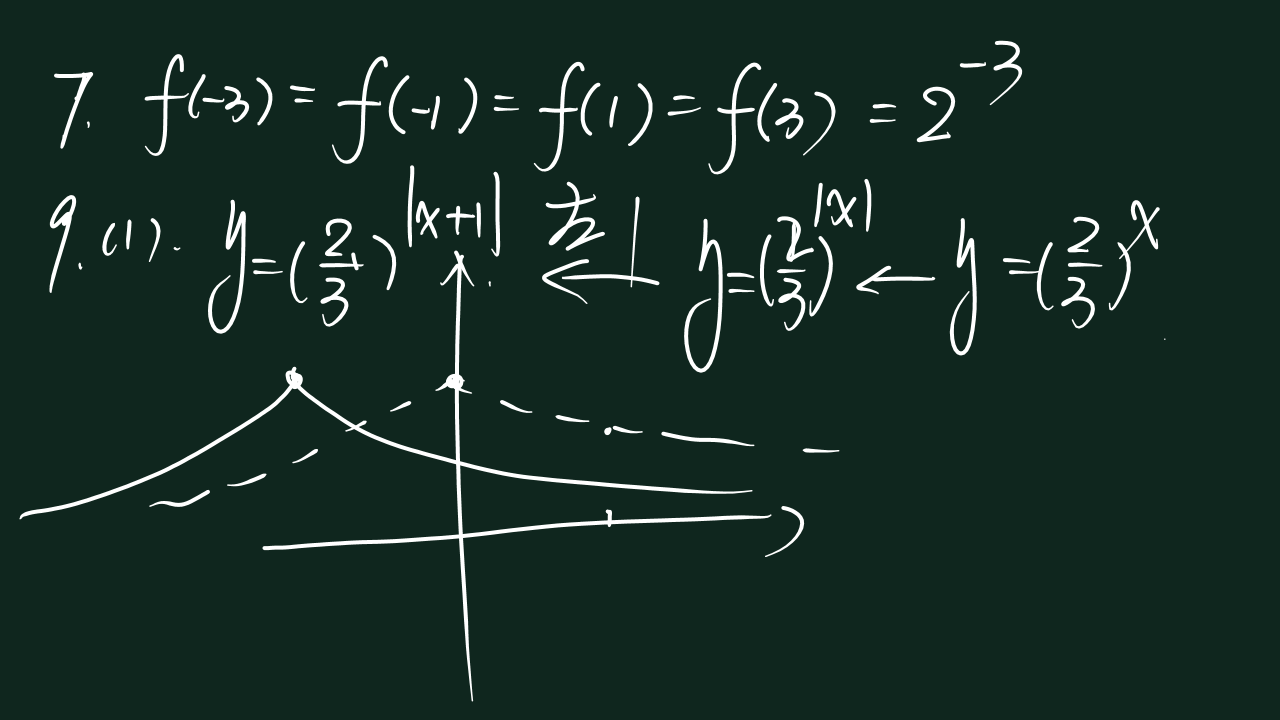 7. f(-3) = f(-1) = f(1) = f(3) = 2^{-3}
9.(1). y=(2/3)^{|x+1|} 左1 ← y=(2/3)^{|x|} ← y=(2/3)^x